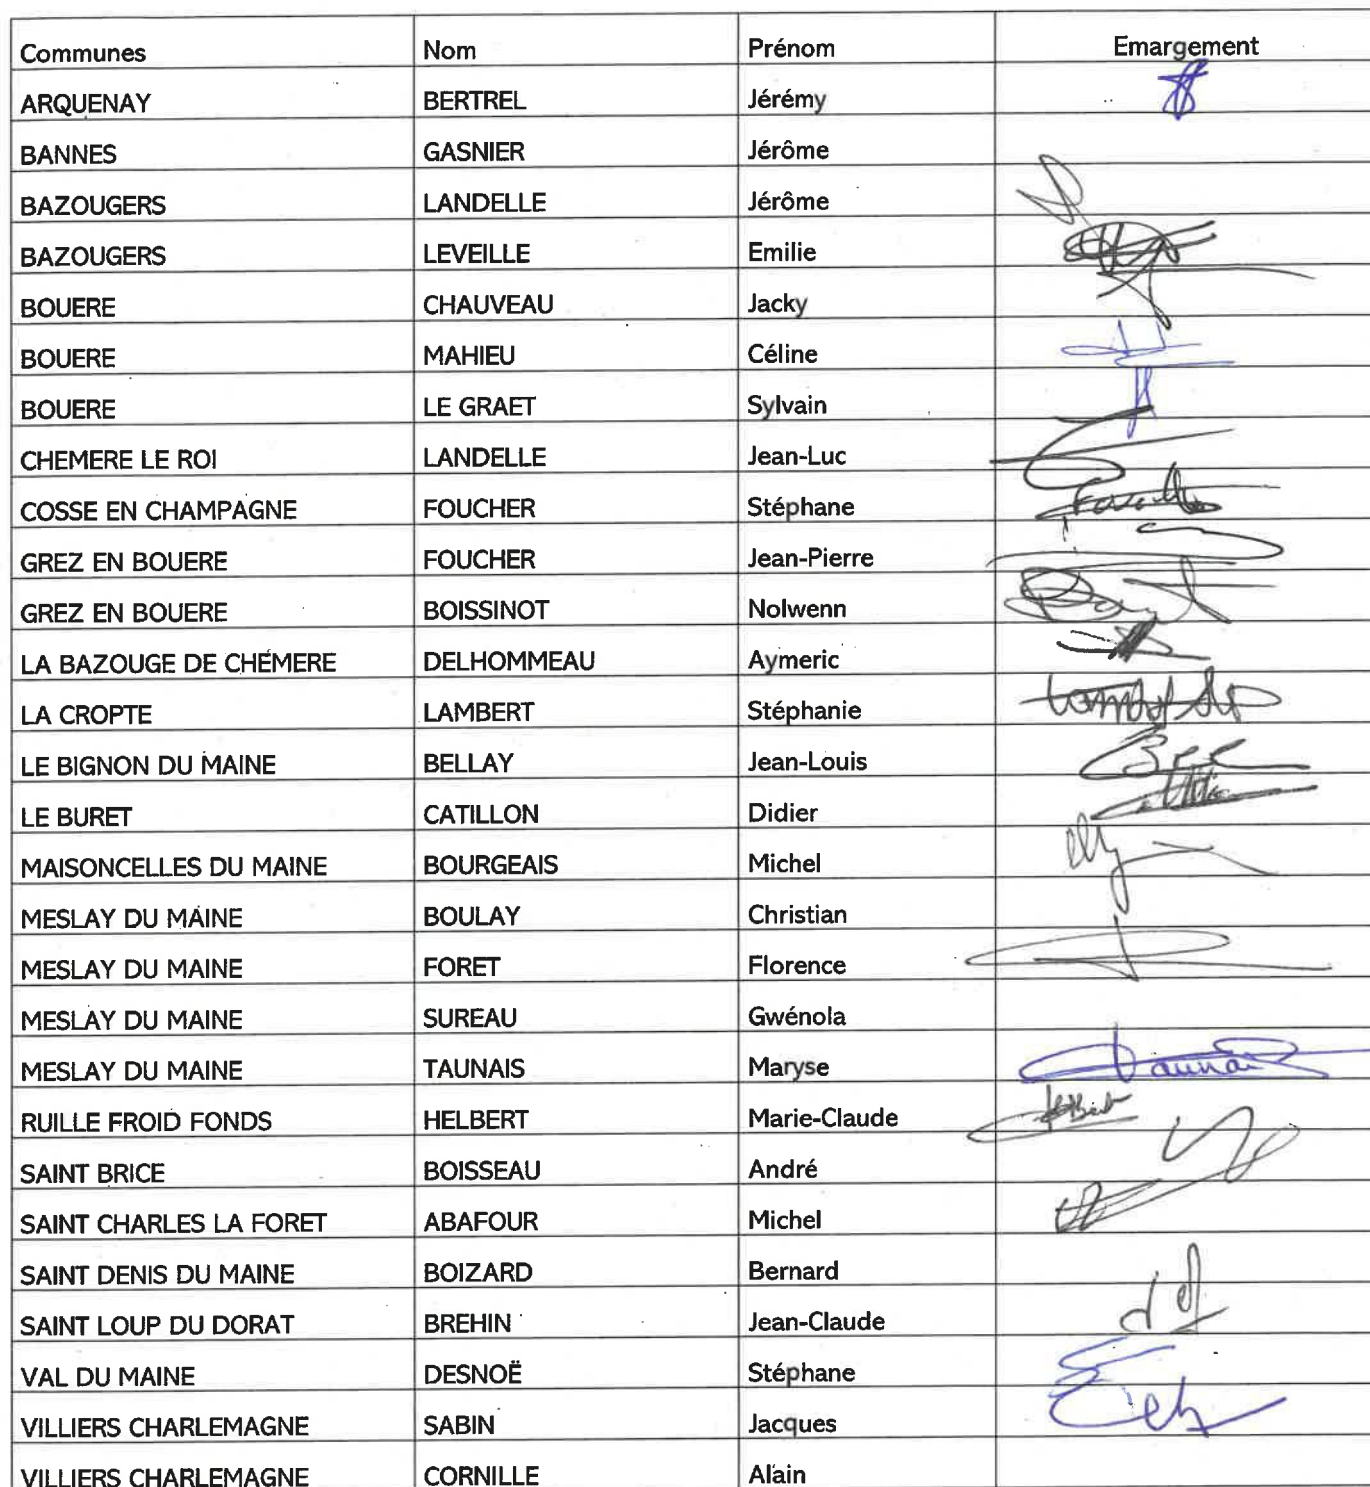 Communes Nom Prénom Emargement
ARQUENAY BERTREL Jérémy
BANNES GASNIER Jérôme
BAZOUGERS LANDELLE Jérôme
BAZOUGERS LEVEILLE Emilie
BOUERE CHAUVEAU Jacky
BOUERE MAHIEU Céline
BOUERE LE GRAET Sylvain
CHEMERE LE ROI LANDELLE Jean-Luc
COSSE EN CHAMPAGNE FOUCHER Stéphane
GREZ EN BOUERE FOUCHER Jean-Pierre
GREZ EN BOUERE BOISSINOT Nolwenn
LA BAZOUGE DE CHEMERE DELHOMMEAU Aymeric
LA CROPTE LAMBERT Stéphanie
LE BIGNON DU MAINE BELLAY Jean-Louis
LE BURET CATILLON Didier
MAISONCELLES DU MAINE BOURGEAIS Michel
MESLAY DU MAINE BOULAY Christian
MESLAY DU MAINE FORET Florence
MESLAY DU MAINE SUREAU Gwénola
MESLAY DU MAINE TAUNAIS Maryse
RUILLE FROID FONDS HELBERT Marie-Claude
SAINT BRICE BOISSEAU André
SAINT CHARLES LA FORET ABAFOUR Michel
SAINT DENIS DU MAINE BOIZARD Bernard
SAINT LOUP DU DORAT BREHIN Jean-Claude
VAL DU MAINE DESNOË Stéphane
VILLIERS CHARLEMAGNE SABIN Jacques
VILLIERS CHARLEMAGNE CORNILLE Alain